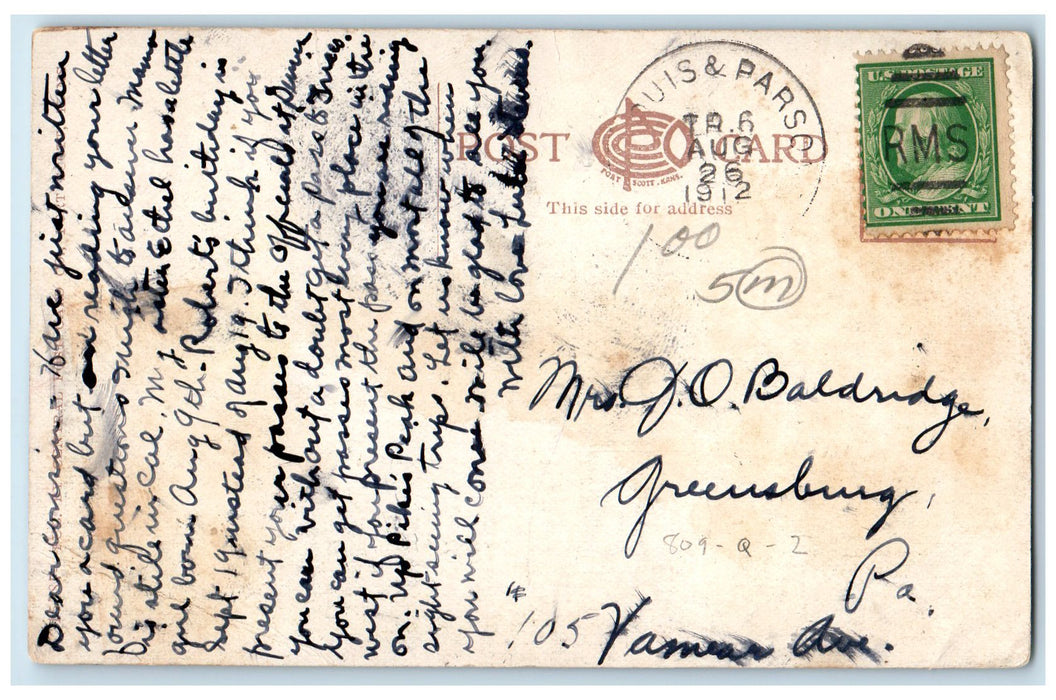 Dear cousin - Have just written
you a card but and reading your letter
found questions unanswered. Mamma
is still in Cal. M & Ethel has a little
girl born Aug 9th. Robert's birthday is
Sept 19 instead of Aug 19. I think if you
present your passes to the office at Denver
you can without a doubt get a pass to Springs.
You can get passes most every place in the
west if you present the pass you are riding
on. Up Pike's Peak and on most all of the
sight seeing trips. Let us know when
you will come will be glad to see you.
With Love
POST CARD
FORT SCOTT, KANS.
This side for address
UIS & PARS
TR. 6
AUG
26
1912
U.S. POSTAGE
RMS
ONE CENT
100
5 m
Mrs. J. O. Baldridge,
Greensburg,
809-Q-2
Pa.
# 105 Ave.